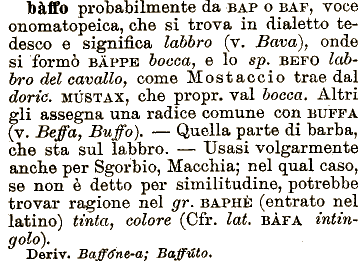 bàffo probabilmente da BAP O BAF, voce
onomatopeica, che si trova in dialetto te-
desco e significa labbro (v. Bava), onde
si formò BÄPPE bocca, e lo sp. BEFO lab-
bro del cavallo, come Mostaccio trae dal
doric. MÚSTAX, che propr. val bocca. Altri
gli assegna una radice comune con BUFFA
(v. Beffa, Buffo). — Quella parte di barba,
che sta sul labbro. — Usasi volgarmente
anche per Sgorbio, Macchia; nel qual caso,
se non è detto per similitudine, potrebbe
trovar ragione nel gr. BAPHÈ (entrato nel
latino) tinta, colore (Cfr. lat. BÀFA intin-
golo).
Deriv. Baffóne-a; Baffúto.